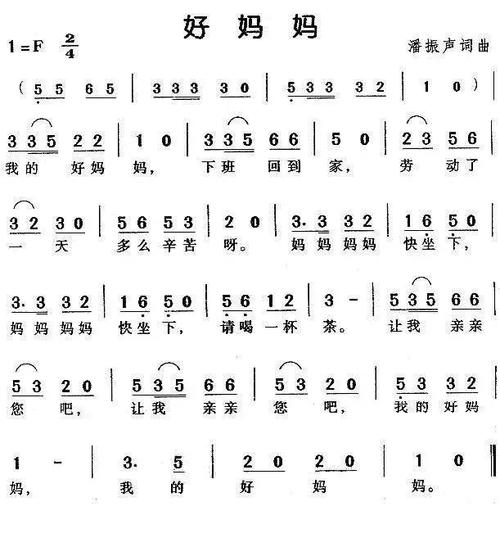 好妈妈
1=F 2/4 潘振声词曲
( 5 5 6 5 | 3 3 3 3 0 | 5 5 3 3 3 2 | 1 0 )
3 3 5 2 2 | 1 0 | 3 3 5 6 6 | 5 0 | 2 3 5 6
我的 好妈 妈, 下班 回到 家, 劳动了
3 2 3 0 | 5 6 5 3 | 2 0 | 3· 3 3 2 | 1 6 5 0
一 天 多么辛苦 呀。 妈妈妈妈 快坐下,
3· 3 3 2 | 1 6 5 0 | 5 6 1 2 | 3 - | 5 3 5 6 6
妈妈妈妈 快坐下, 请喝一杯 茶。 让我 亲亲
5 3 2 0 | 5 3 5 6 6 | 5 3 2 0 | 5 5 3 2
您 吧, 让我 亲亲 您 吧, 我的好妈
1 - | 3· 5 | 2 0 2 0 | 1 0
妈, 我 的 好 妈 妈。